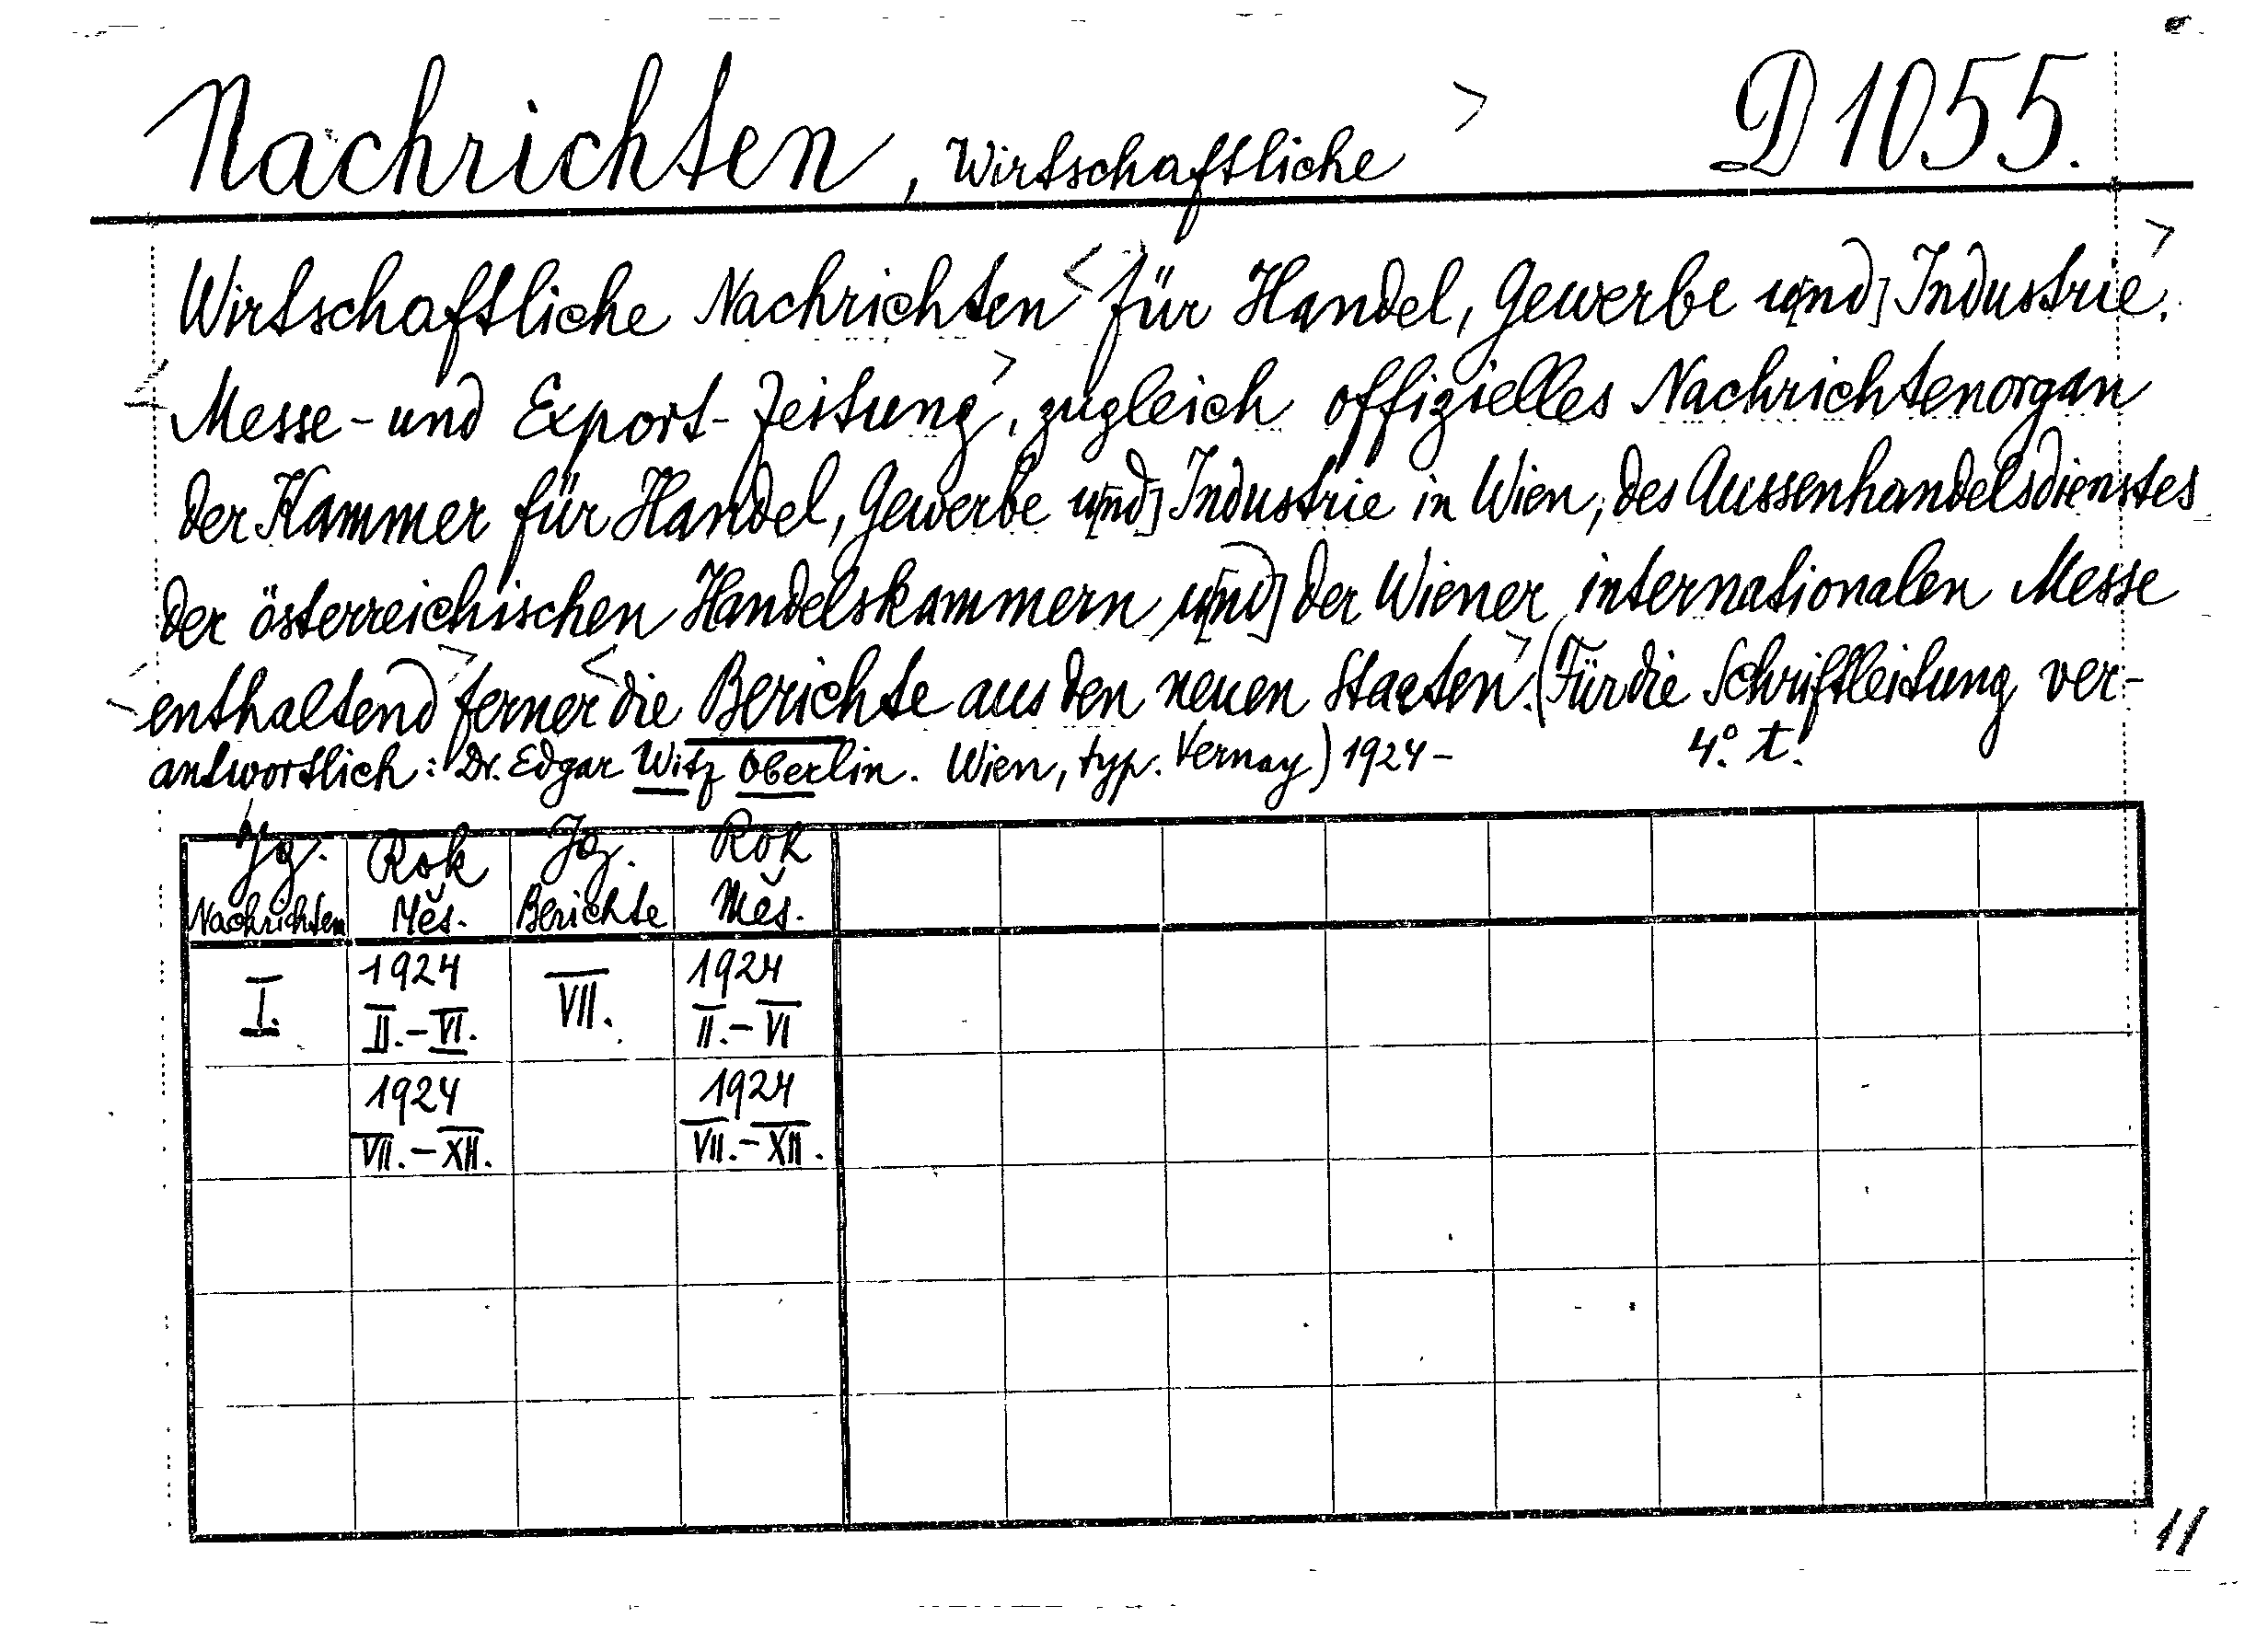 Nachrichten, Wirtschaftliche > D 1055.
Wirtschaftliche Nachrichten < für Handel, Gewerbe u[nd] Industrie >.
< Messe- und Export-Zeitung >, zugleich offizielles Nachrichtenorgan
der Kammer für Handel, Gewerbe u[nd] Industrie in Wien, des Aussenhandelsdienstes
der österreichischen Handelskammern u[nd] der Wiener internationalen Messe
< enthaltend > ferner < die Berichte aus den neuen Staaten >. (Für die Schriftleitung ver-
antwortlich: Dr. Edgar Witz Oberlin. Wien, typ. Vernay) 1924- 4°. t.
Jg. Rok Jg. Rok
Nachrichten Měs. Berichte Měs.
I. 1924 VII. 1924
II.-VI. II.-VI
1924 1924
VII.-XII. VII.-XII.
11